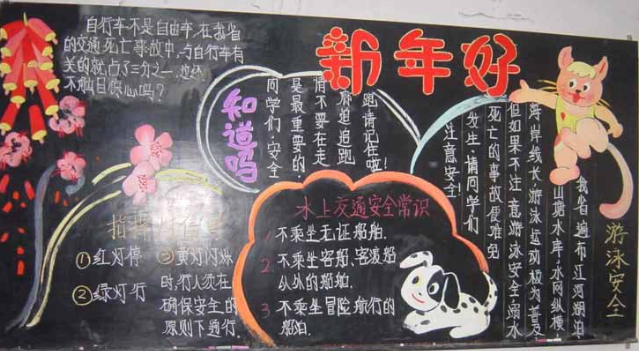 自行车不是自由车,在我省
的交通死亡事故中,与自行车有
关的就占了三分之一,您还
不触目惊心吗?
新年好
知道吗
同学们:安全
是最重要的
情不要在走
廊追追跑
跑请记住啦!
指挥灯信号
①红灯停
②绿灯行
③黄灯闪烁
时,行人须在
确保安全的
原则下通行
水上交通安全常识
1. 不乘坐无证船舶.
2. 不乘坐客船、客渡船
以外的船舶.
3. 不乘坐冒险航行的
船舶.
游泳安全
我省遍布江河湖泊
山塘水库,水网纵横
海岸线长,游泳运动极为普及
但如果不注意游泳安全溺水
死亡的事故便难免
发生.请同学们
注意安全!